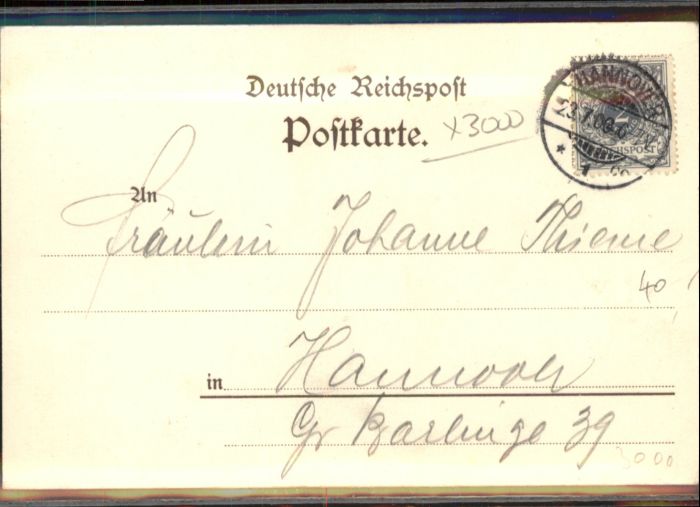 Deutsche Reichspost
Postkarte.
x3000
HANNOVER
1
REICHSPOST
An
Fräulein Johanne Thieme
40
in Hannover
Gr Barlinge 39
3000